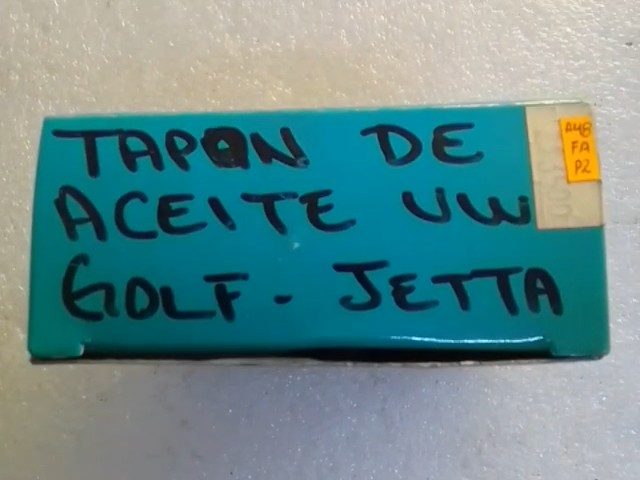 TAPON DE
ACEITE VW
GOLF - JETTA
A48
FA
P2